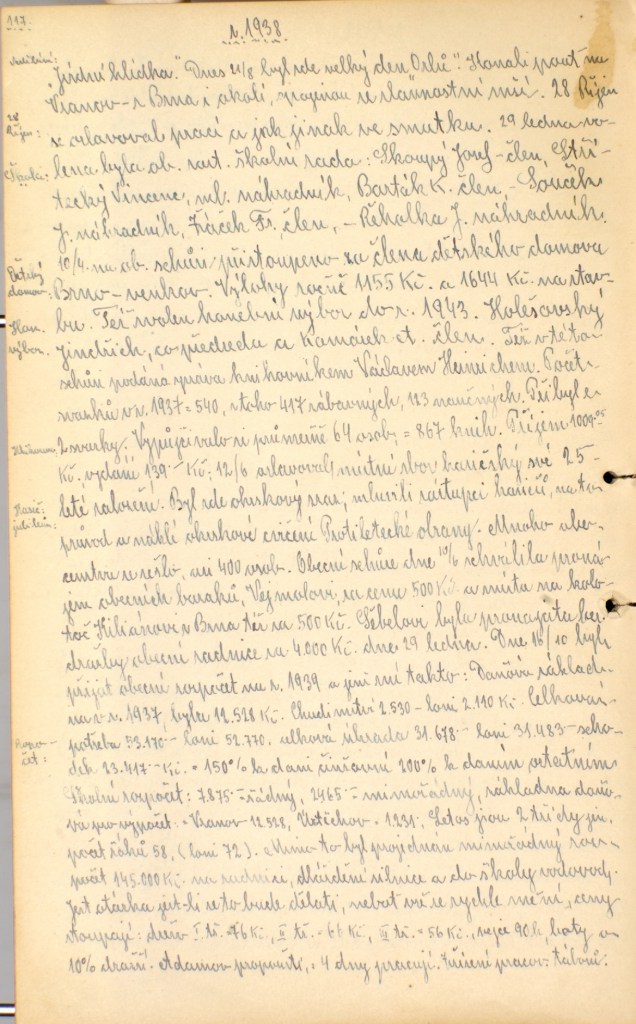 117.
r. 1938
"Jízdní hlídka." Dnes 21/8 byl zde velký den Orlů". Konali pout na
Vranov z Brna i okolí, spojenou se slavnostní mší. 28 Říjen
28 Říjen:
se oslavoval prací a jak jinak ve smutku. 29 ledna zvo-
Škola:
lena byla ob. rast. školní rada: Skoupý Josef - člen, Stří-
tecký Vincenc, ml. náhradník, Barták K. člen, - Souček
J. náhradník, Žáček Fr. člen, - Řehulka J. náhradník.
10/4. na ob. schůzi přistoupeno za člena dětského domova
Dětský domov:
Brno - venkov. Výlohy ročně 1155 Kč. a 1644 Kč. na stav-
bu. Též zvolen honební výbor do r. 1943. Holešovský
Hon. výbor.
Jindřich, co předseda a členů. člen. Též v této
schůzi podána zpráva knihovníkem Václavem Heinrichem. Počet
svazků v r. 1937 = 540, z toho 417 zábavných, 123 naučných. Přibyl-e
Knihovna,
2 svazky. Vypůjčovalo si průměrně 64 osob, = 867 knih. Příjem 1009.05
Kč. vydání 139.- Kč. 12/6 oslavoval místní sbor hasičský své 25-
Hasič. jubileum:
leté založení. Byl zde okrskový sraz, mluvili zástupci hasičů, na to
průvod a náhlé okrskové cvičení Protiletecké obrany. Mnoho obe-
censtva se sešlo, asi 400 osob. Obecní schůze dne 10/6 schválila proná-
jem obecních baráků, Vejmolovi, za cenu 500 Kč. a místa na kolo-
toč Kiliánové z Brna též za 500 Kč. Sébelovi byla pronajata bez
dražby obecní radnice za 4.000 Kč. dne 29 ledna. Dne 16/10 byl
přijat obecní rozpočet na r. 1939 a jeví se takto: Daňová základ-
na v r. 1937 byla 12.528 Kč. Chudinství 2.530 - loni 2.110 Kč. Celková
Rozpo- čet:
potřeba 53.170.- loni 52.770. celková úhrada 31.678.- loni 31.483.- scho-
dek 23.417.- Kč. = 150% k dani činžovní 200% k daním ostatním
Školní rozpočet: 7.875.- řádný, 2465.- mimořádný, základna daňo-
vá pro výpočet: - Vranov 12.528, Útěchov - 1.231. Letos jsou 2 třídy jen,
počet žáků 58, (loni 72). Mimo to byl projednán mimořádný roz-
počet 145.000 Kč. na radnici, dláždění silnice a do školy vodovod.
Jest otázka jest-li se to bude dělati, neboť vše se rychle mění, ceny
stoupají: dřevo I. tř. = 76 Kč, II tř. = 66 Kč, III tř. = 56 Kč, vejce 90 h. boty o
10% dražší. Adamov propouští, - 4 dny pracují. Zřízení pracov. táborů.